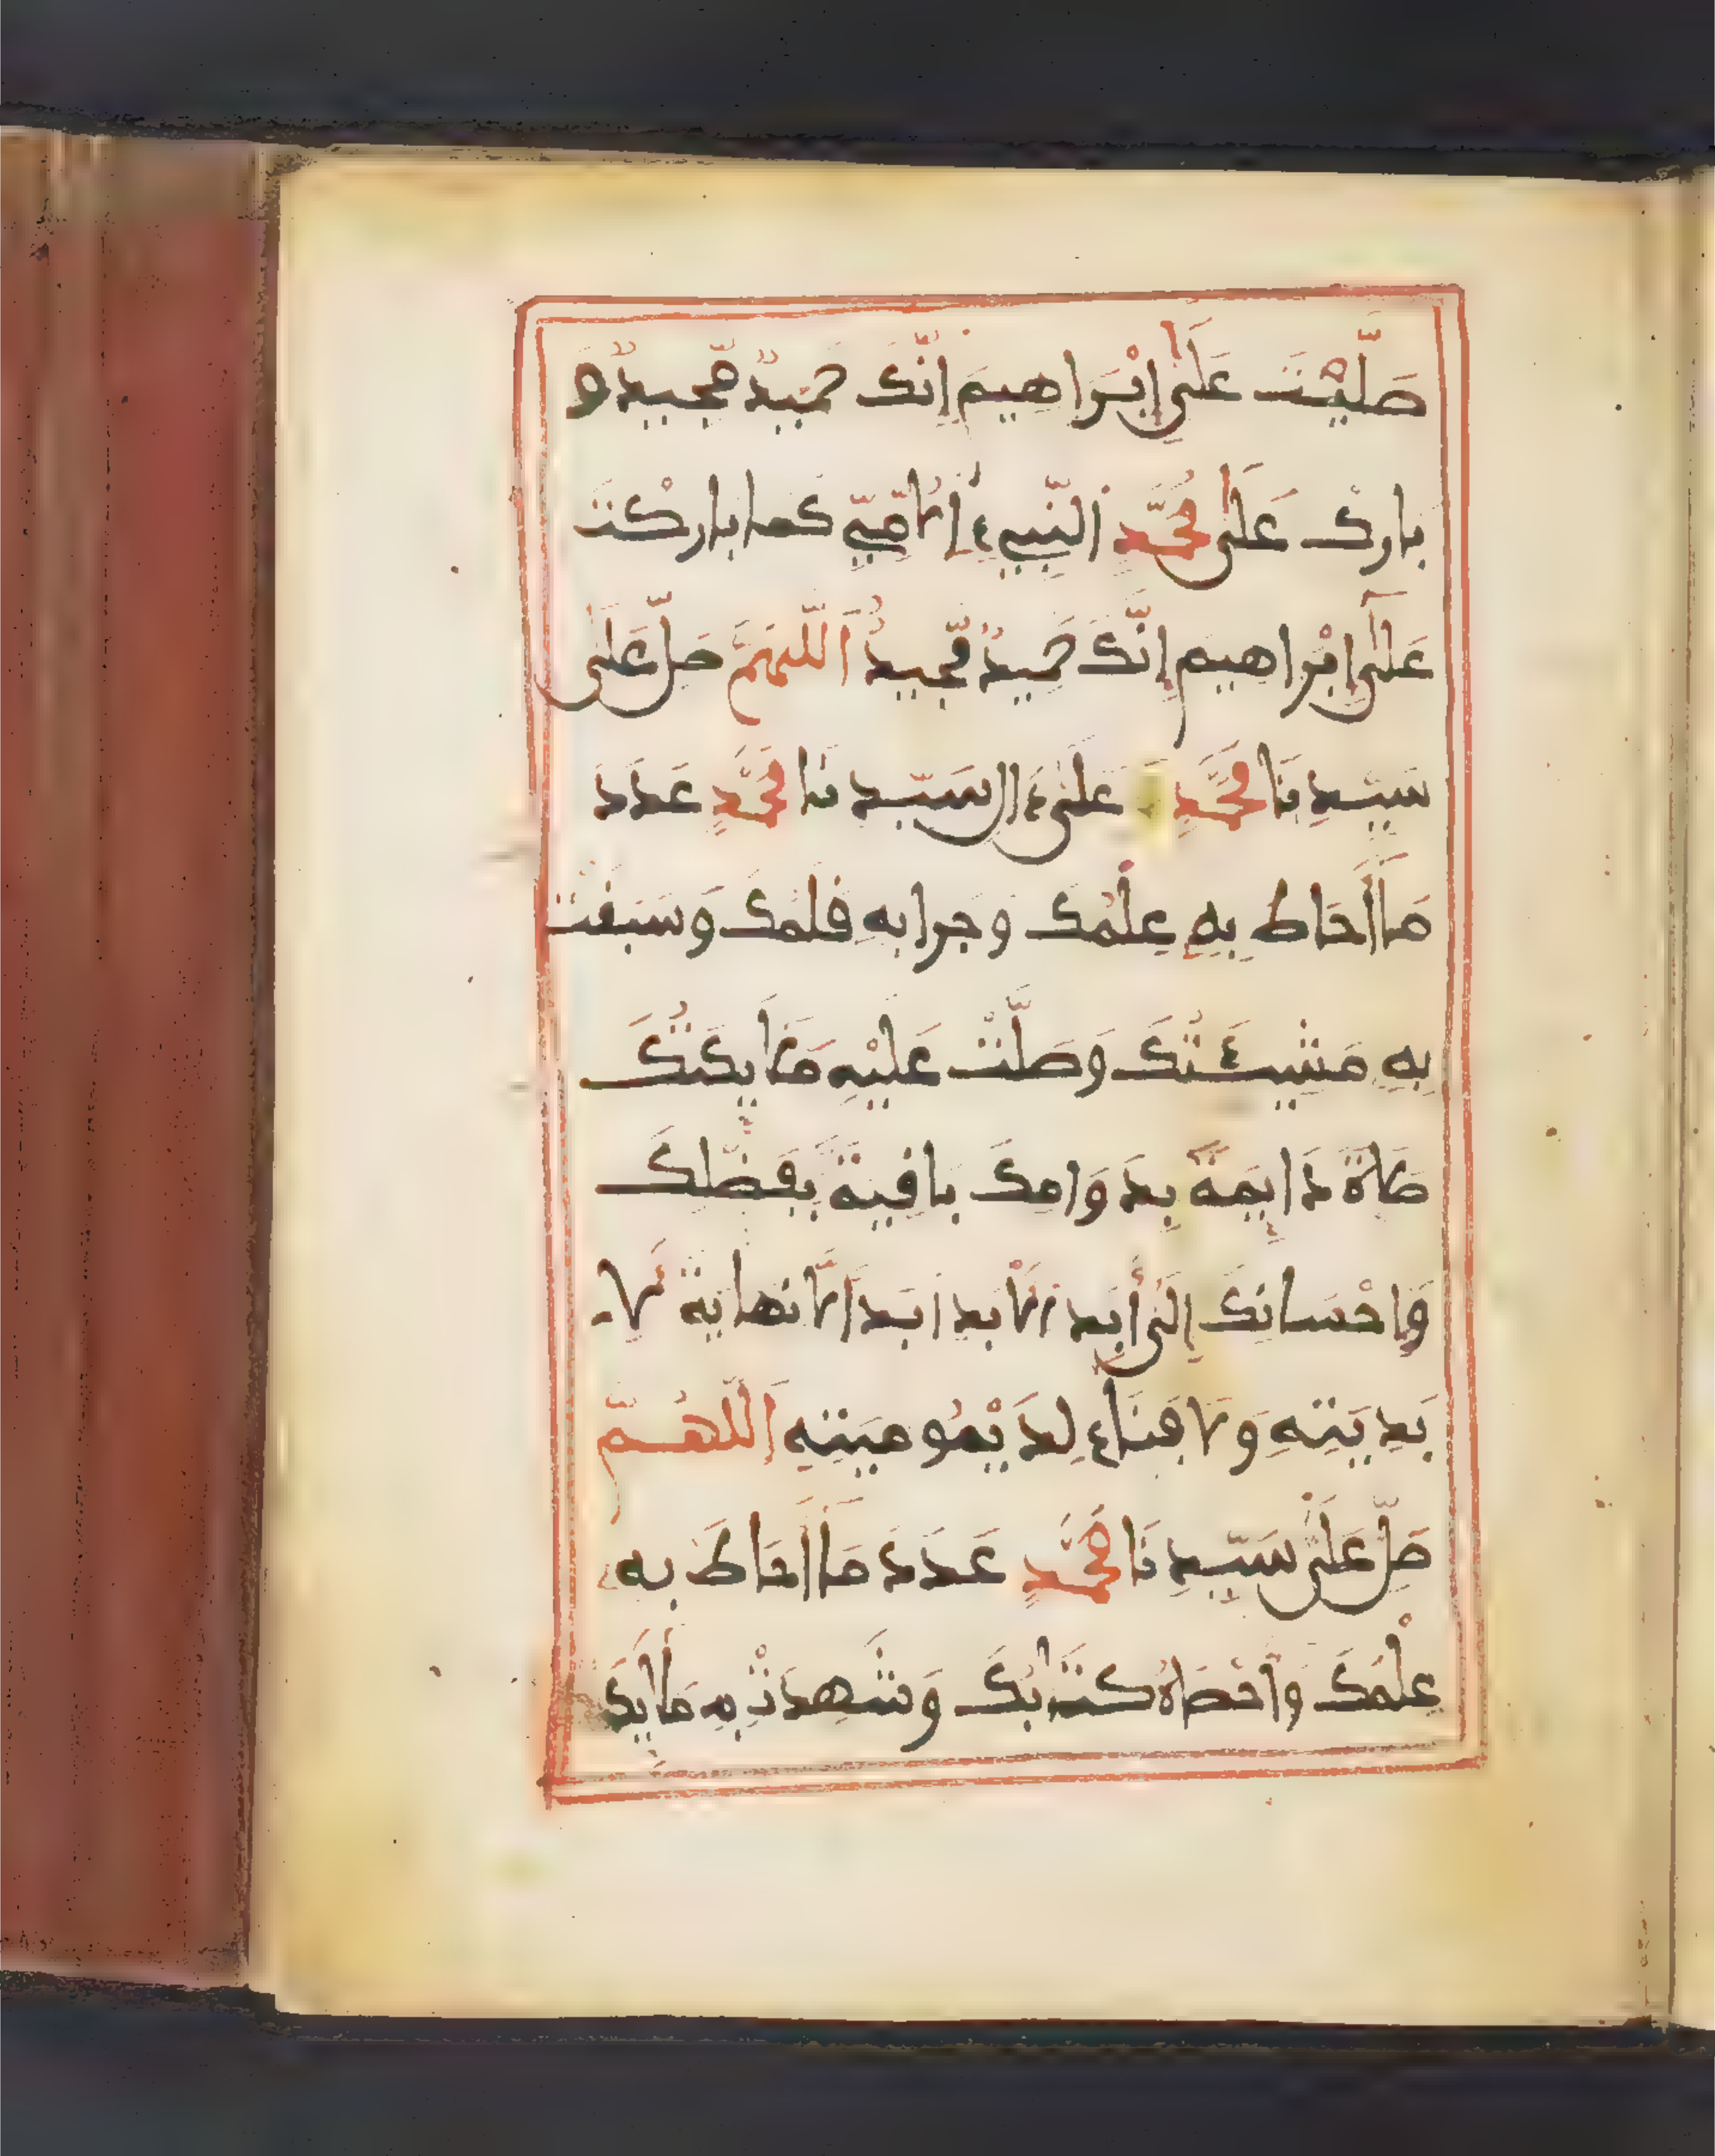 صَلَّيْتَ عَلَىٰ إِبْرَاهِيمَ إِنَّكَ حَمِيدٌ مَّجِيدٌ وَ
بارِكْ عَلَىٰ مُحَمَّدٍ اَلنَّبِيءِ اِلُامِّيِّ كَما بارَكْتَ
عَلَىٰٓ إِبْرَاهِيمَ إِنَّكَ حَمِيدٌ مَّجِيدٌ اَللَّهُمَّ صَلِّ عَلَىٰ
سَيِّدِنَا مُحَمَّدٍ وَعَلَىٰ ءَالِ سَيِّدِنَا مُحَمَّدٍ عَدَدَ
مَآ أَحَاطَ بِهِ عِلْمُكَ وَجَرا بِهِ قَلَمُكَ وَسَبَقَتْ
بِهِ مَشِيئَتُكَ وَصَلَّتْ عَلَيْهِ مَلَايِكَتُكَ
صَلَاةً دَايِمَةً بِدَوَامِكَ باقِيَةً بِفَضْلِكَ
وَإِحْسَانِكَ إِلَىٰٓ أَبَدِ اِلْأَبَدِ أَبَداً لَّا نِهايَةَ لِأَ
بَدِيَتِهِ وَلَا فَنَاءَ لِدَيْمُومِيَتِهِ اَللَّهُمَّ
صَلِّ عَلَىٰ سَيِّدِنَا مُحَمَّدٍ عَدَدَ مَآ أَحَاطَ بِهِ
عِلْمُكَ وَأَحْصَاهُ كِتَابُكَ وَشَهِدَتْ بِهِ مَلَايِكَ